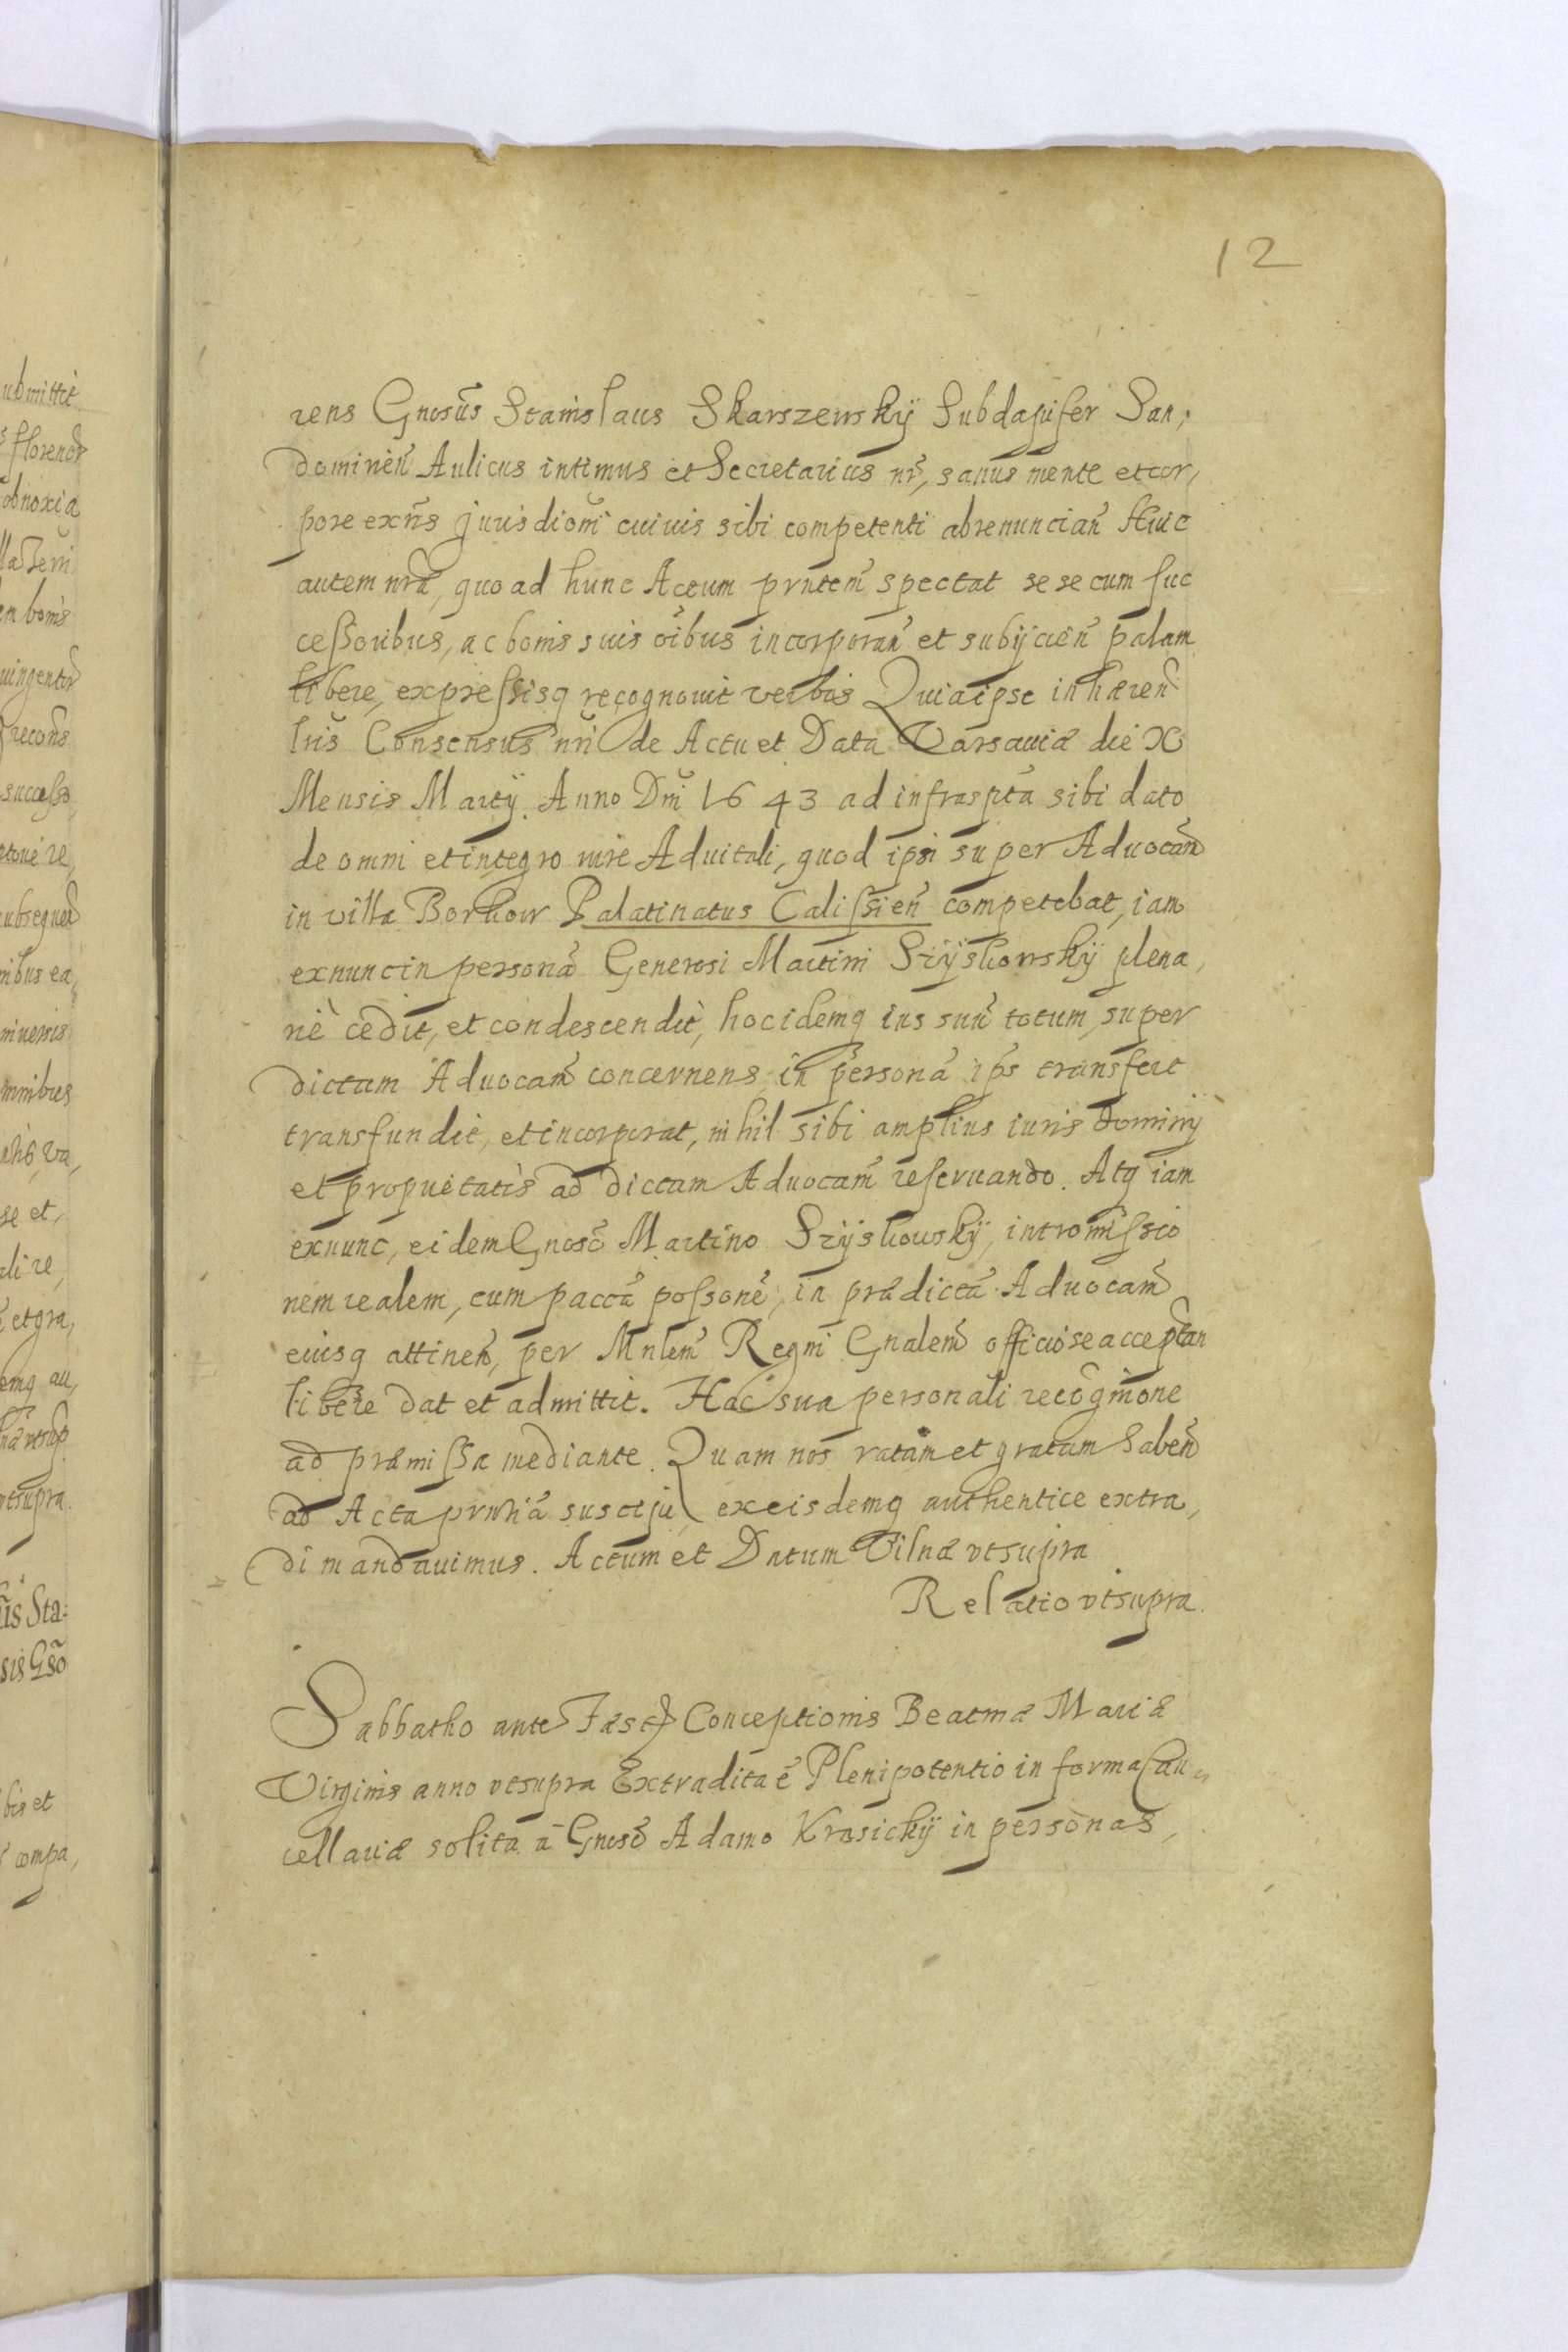 12
rens Gnosus Stanislaus Skarszewskÿ Subdapifer San,
dominen Aulicus intimus et Secretarius nr, sanus mente et cor,
pore exns jurisdioni cuiuis sibi competenti abrenuncian Huic
autem nra, quo ad hunc Actum prntem spectat se se cum suc
cessoribus, ac bonis suis oibus incorporan et subÿcien palam
libere, expressisq recognouit verbis Quia ipse inhæren
lris Consensus nri de Actu et Data Varsauiæ die X
Mensis Martÿ Anno Dni 1643 ad infraspta sibi dato
de omni et integro iure Aduitali, quod ipsi super Aduocan
in villa Borkow Palatinatus Calissien competebat, iam
exnunc in persona Generosi Martini Szÿskowskÿ plena,
rie cedit, et condescendit, hoc idemq ius suu totum, super
dictam Aduocam concernens in persona ips transfert
transfundit, et incorporat, nihil sibi amplius iuris Dominÿ
et proprietatis ad dictam Aduocam reseruando. Atq iam
exnunc, eidem Gnoso Martino Szÿskowskÿ, intromissio
nem realem, cum paccta possone, in prædicta Aduocam
eiusq attinen, per Mnlem Regni Gnalem officiose acceptan
libere dat et admittit. Hac sua personali recognione
ad præmissa mediante. Quam nos ratam et gratam haben
ad Acta prntia suscipi, exeisdemq authentice extra,
di mandauimus. Actum et Datum Vilnæ vtsupra
Relatio vtsupra.
Sabbatho ante Fest Conceptionis Beatmæ Mariæ
Virginis anno vtsupra Extradita e Plenipotentio in forma Can
cellariæ solita a Gnoso Adamo Krasickÿ in personas,
ubmittit
s florenor
obnoxia
en bonis
recons
successo,
ubsequen
nibus ea,
niuersis
mnibus
se et,
et gra,
emq au,
vtsupra.
us Sta:
sis Gso
bis et
compa,